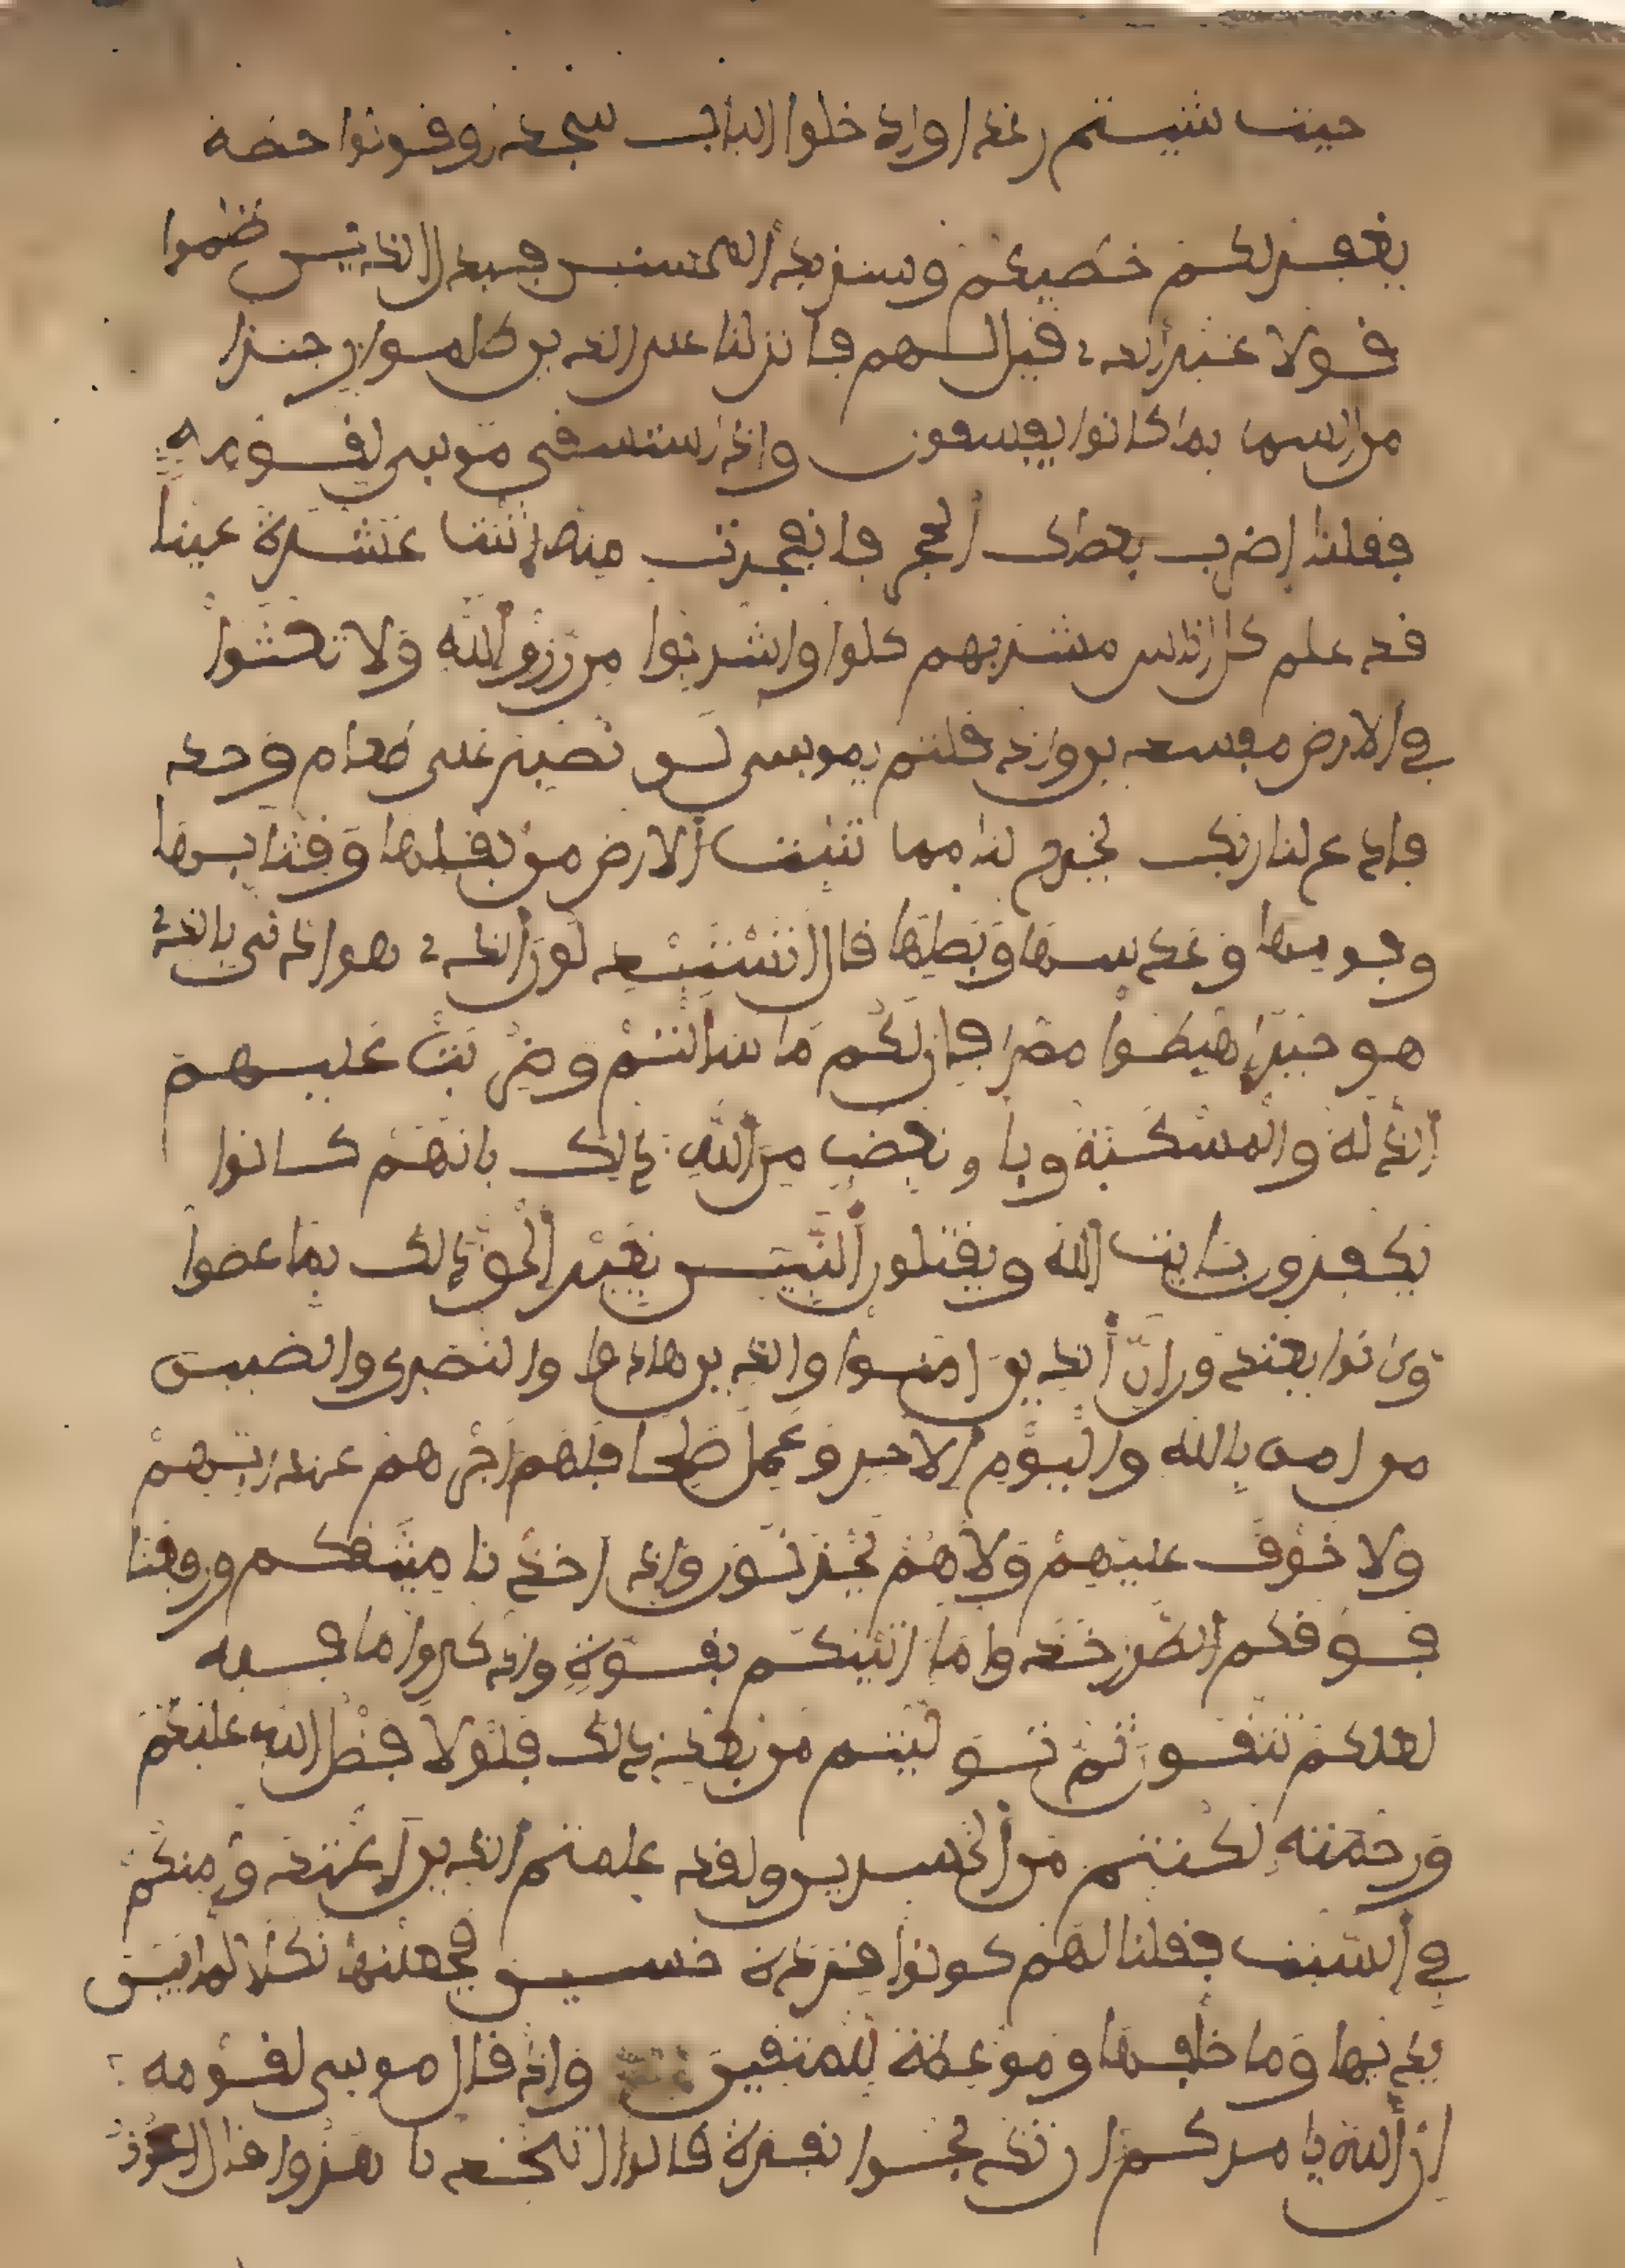 حيث شيتم رغدا وادخلوا الباب سجدا وقولوا حطة
يغفر لكم خطيكم وسنزيد المحسنين فبدل الذين ظلموا
قولا غير الذے قيل لهم فانزلنا على الذين ظلموا رجزا
من السما بما كانوا يفسقون واذ استسقى موسى لقومه
فقلنا اضرب بعصاك الحجر فانفجرت منه اثنتا عشرة عينا
قد علم كل اناس مشربهم كلوا واشربوا من رزق الله ولا تعثوا
في الارض مفسدين واذ قلتم يموسى لن نصبر على طعام وحد
فادع لنا ربك يخرج لنا مما تنبت الارض من بقلها وقثايها
وفومها وعدسها وبصلها قال اتستبدلون الذے هو ادنى بالذے
هو خير اهبطوا مصرا فان لكم ما سالتم وضربت عليهم
الذلة والمسكنة وباو بغضب من الله ذلك بانهم كانوا
يكفرون بايت الله ويقتلون النبين بغير الحق ذلك بما عصوا
وكانوا يعتدون ان الذين امنوا والذين هادوا والنصرى والصبين
من امن بالله واليوم الاخر وعمل صلحا فلهم اجرهم عند ربهم
ولا خوف عليهم ولا هم يحزنون واذ اخذنا ميثقكم ورفعنا
فوقكم الطور خذوا ما اتينكم بقوة واذكروا ما فيه
لعلكم تتقون ثم توليتم من بعد ذلك فلولا فضل الله عليكم
ورحمته لكنتم من الخسرين ولقد علمتم الذين اعتدو منكم
في السبت فقلنا لهم كونوا قردة خسين فجعلنها نكلا لما بين
يديها وما خلفها وموعظة للمتقين واذ قال موسى لقومه
ان الله يامركم ان تذبحوا بقرة قالوا اتتخذنا هزوا قال اعوذ